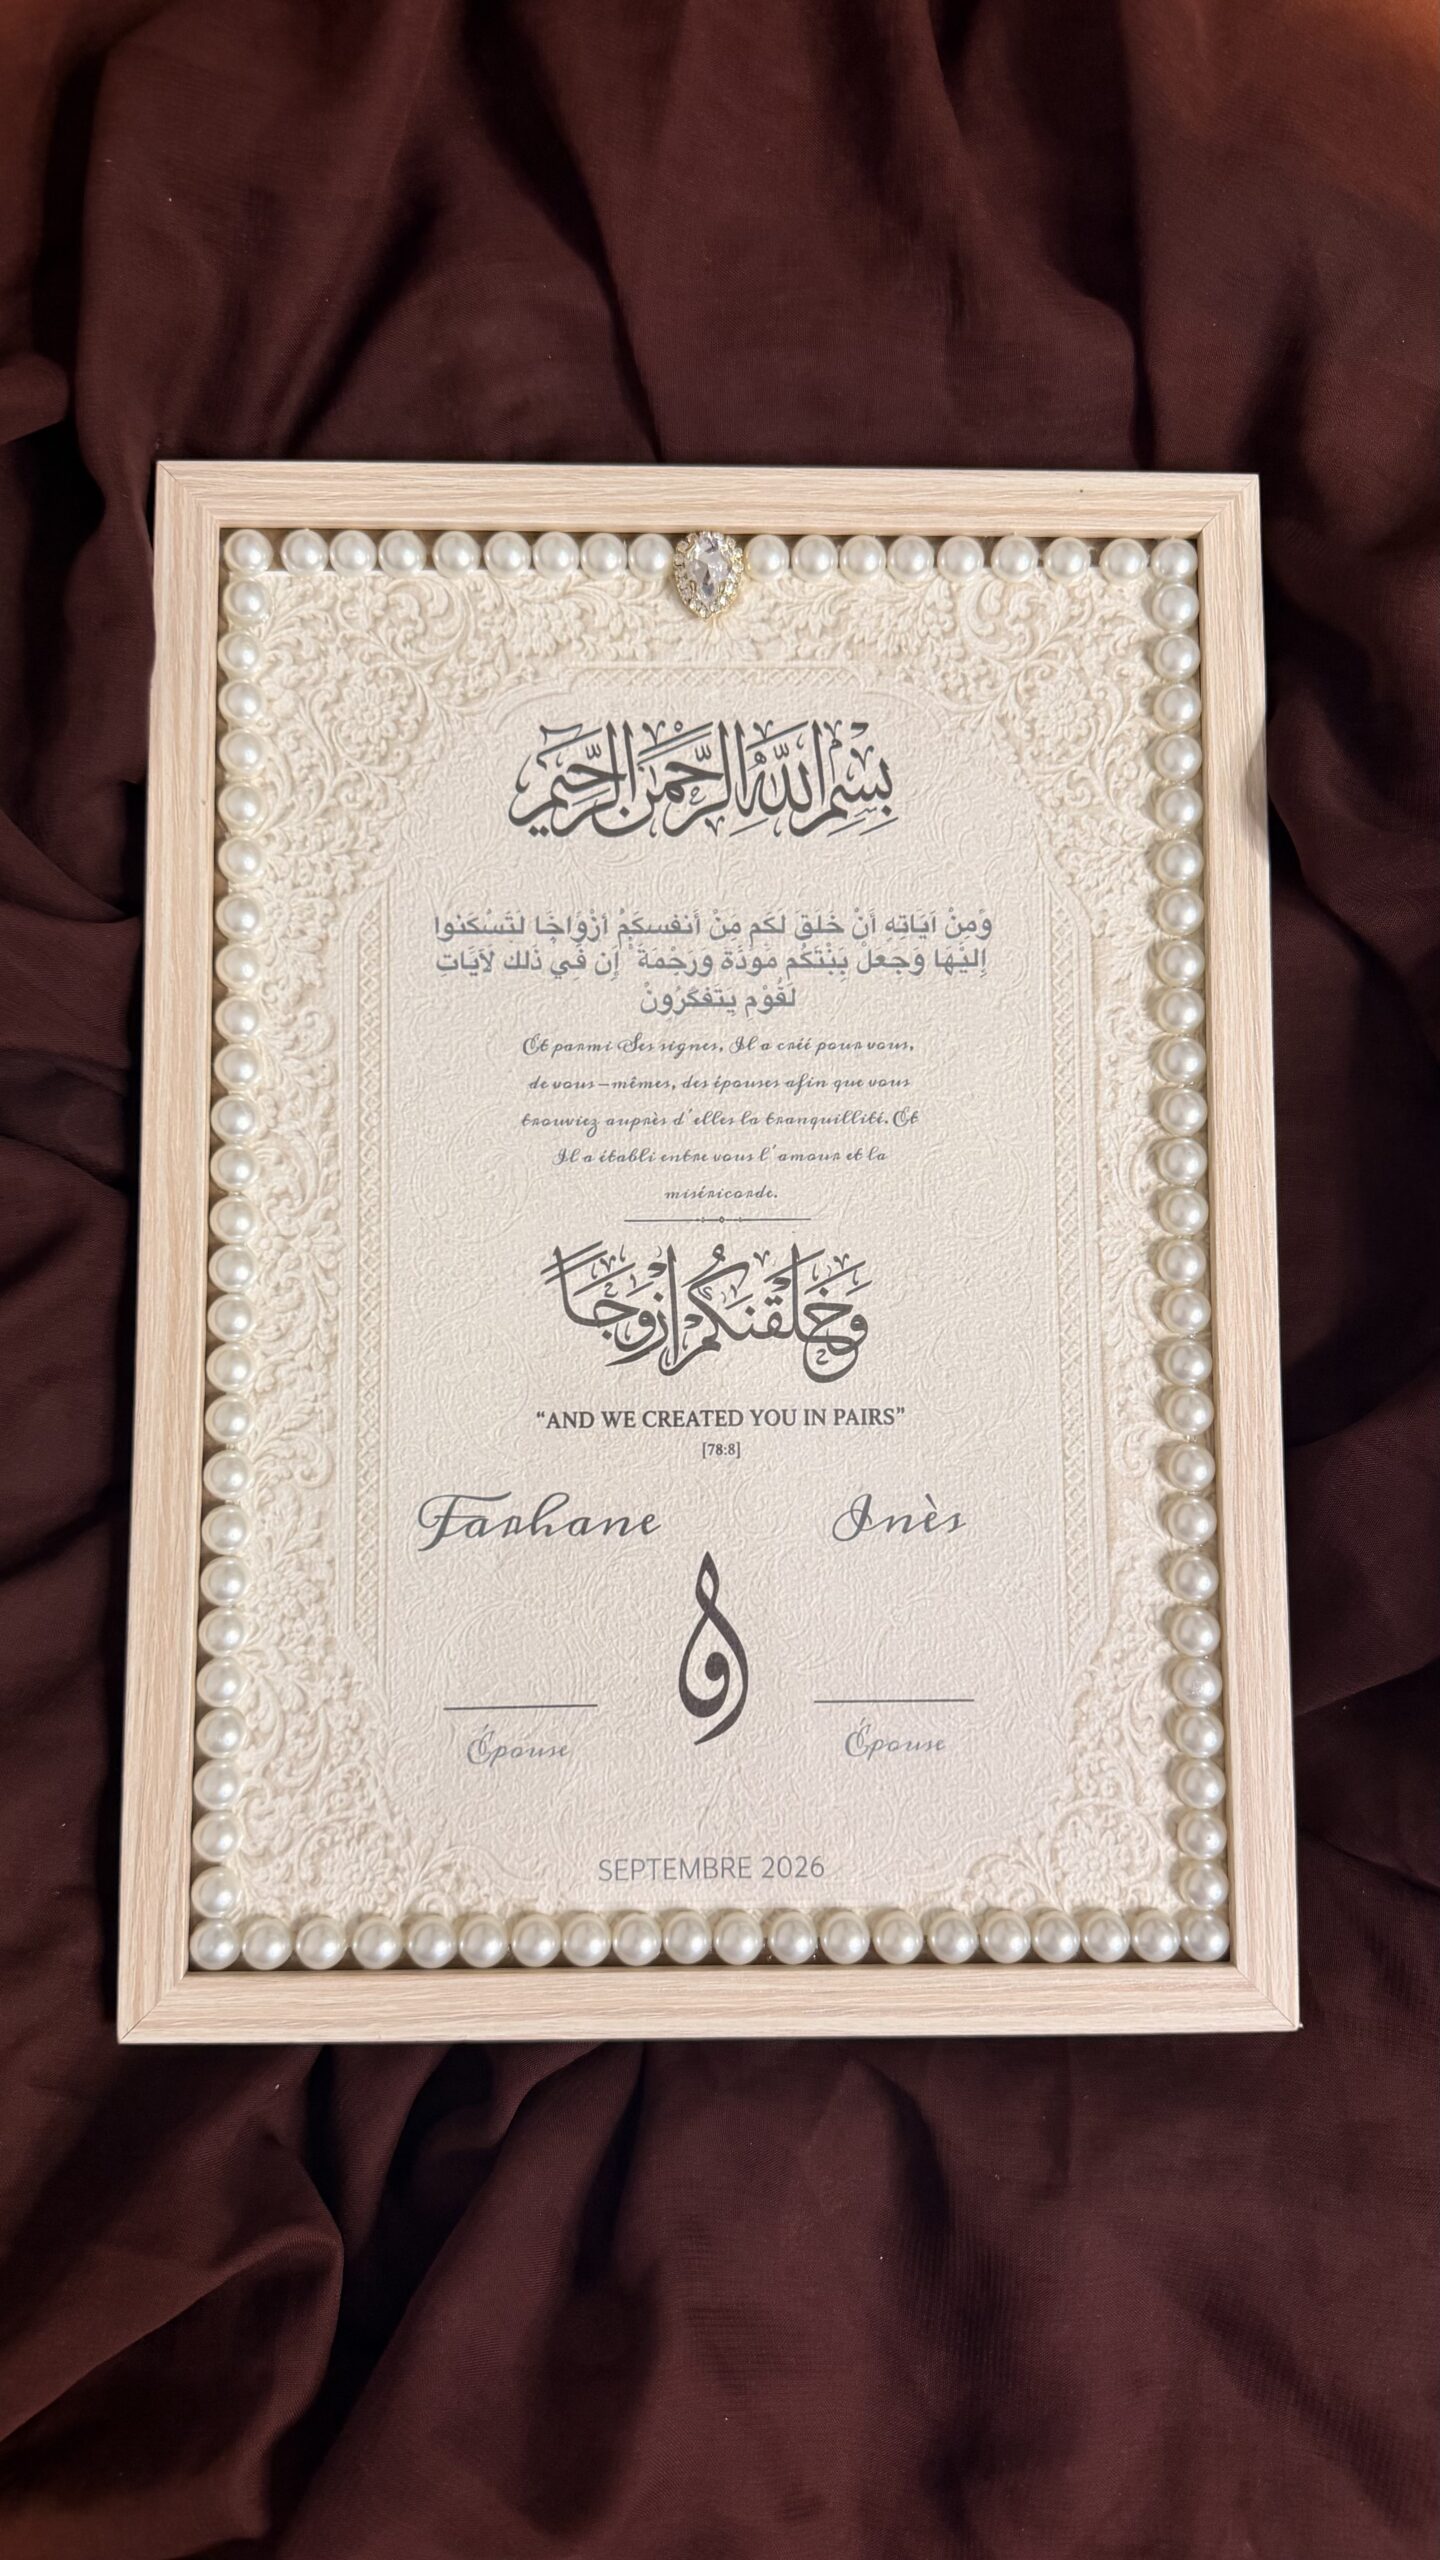 بِسْمِ اللَّهِ الرَّحْمَنِ الرَّحِيمِ
وَمِنْ آيَاتِهِ أَنْ خَلَقَ لَكُم مِّنْ أَنفُسِكُمْ أَزْوَاجًا لِّتَسْكُنُوا
إِلَيْهَا وَجَعَلَ بَيْنَكُم مَّوَدَّةً وَرَحْمَةً ۚ إِنَّ فِي ذَٰلِكَ لَآيَاتٍ
لِّقَوْمٍ يَتَفَكَّرُونَ
Et parmi Ses signes, Il a créé pour vous,
de vous-mêmes, des épouses afin que vous
trouviez auprès d'elles la tranquillité. Et
Il a établi entre vous l'amour et la
miséricorde.
وَخَلَقْنَكُمْ أَزْوَجًا
“AND WE CREATED YOU IN PAIRS”
[78:8]
Farhane Inès
و
Épouse Épouse
SEPTEMBRE 2026